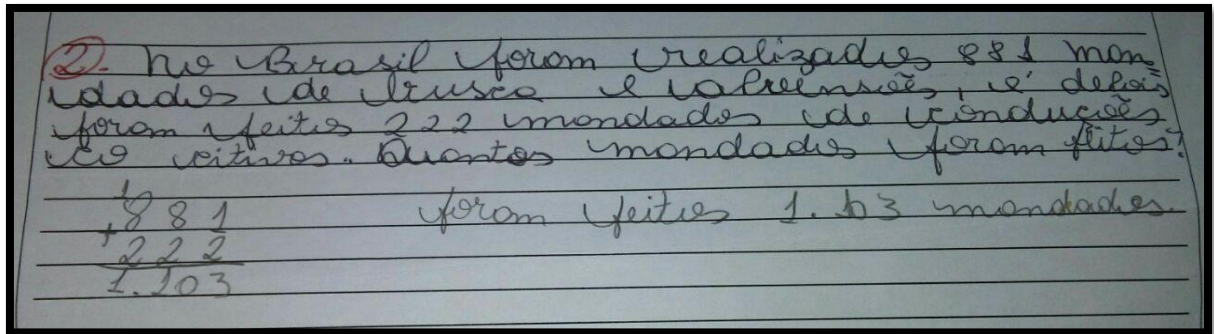 2. No Brasil foram realizados 881 man
dados de busca e apreensões, e depois
foram feitos 222 mandados de conduções
co citivas. Quantos mandados foram feitos?
1
881 foram feitos 1.103 mandados.
+222
1.103